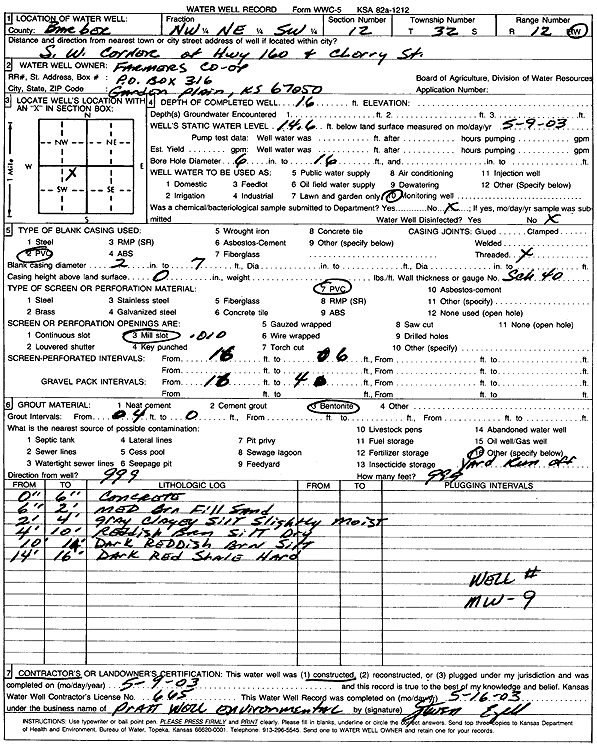 WATER WELL RECORD Form WWC-5 KSA 82a-1212
1 LOCATION OF WATER WELL: Fraction Section Number Township Number Range Number
County: Barber NW ¼ NE ¼ SW ¼ 12 T 32 S R 12 E/W
Distance and direction from nearest town or city street address of well if located within city?
S. W. Corner of Hwy 160 & Cherry St.
2 WATER WELL OWNER: Farmers CO-OP
RR#, St. Address, Box # : P.O. Box 316 Board of Agriculture, Division of Water Resources
City, State, ZIP Code : Garden Plain, KS 67050 Application Number:
3 LOCATE WELL'S LOCATION WITH AN "X" IN SECTION BOX:
N
NW NE
W E
X
SW SE
S
1 Mile
4 DEPTH OF COMPLETED WELL 16 ft. ELEVATION:
Depth(s) Groundwater Encountered 1. ft. 2. ft. 3. ft.
WELL'S STATIC WATER LEVEL 14.6 ft. below land surface measured on mo/day/yr 5-9-03
Pump test data: Well water was ft. after hours pumping gpm
Est. Yield gpm: Well water was ft. after hours pumping gpm
Bore Hole Diameter 6 in. to 16 ft., and in. to ft.
WELL WATER TO BE USED AS: 5 Public water supply 8 Air conditioning 11 Injection well
1 Domestic 3 Feedlot 6 Oil field water supply 9 Dewatering 12 Other (Specify below)
2 Irrigation 4 Industrial 7 Lawn and garden only 10 Monitoring well
Was a chemical/bacteriological sample submitted to Department? Yes No X ; If yes, mo/day/yr sample was submitted Water Well Disinfected? Yes No X
5 TYPE OF BLANK CASING USED: 5 Wrought iron 8 Concrete tile CASING JOINTS: Glued Clamped
1 Steel 3 RMP (SR) 6 Asbestos-Cement 9 Other (specify below) Welded
2 PVC 4 ABS 7 Fiberglass Threaded X
Blank casing diameter 2 in. to 7 ft., Dia in. to ft., Dia in. to ft.
Casing height above land surface 0 in., weight lbs./ft. Wall thickness or gauge No. Sch 40
TYPE OF SCREEN OR PERFORATION MATERIAL: 7 PVC 10 Asbestos-cement
1 Steel 3 Stainless steel 5 Fiberglass 8 RMP (SR) 11 Other (specify)
2 Brass 4 Galvanized steel 6 Concrete tile 9 ABS 12 None used (open hole)
SCREEN OR PERFORATION OPENINGS ARE: 5 Gauzed wrapped 8 Saw cut 11 None (open hole)
1 Continuous slot 3 Mill slot .010 6 Wire wrapped 9 Drilled holes
2 Louvered shutter 4 Key punched 7 Torch cut 10 Other (specify)
SCREEN-PERFORATED INTERVALS: From 16 ft. to 6 ft., From ft. to ft.
From ft. to ft., From ft. to ft.
GRAVEL PACK INTERVALS: From 16 ft. to 4 ft., From ft. to ft.
From ft. to ft., From ft. to ft.
6 GROUT MATERIAL: 1 Neat cement 2 Cement grout 3 Bentonite 4 Other
Grout Intervals: From 4 ft. to 0 ft., From ft. to ft., From ft. to ft.
What is the nearest source of possible contamination: 10 Livestock pens 14 Abandoned water well
1 Septic tank 4 Lateral lines 7 Pit privy 11 Fuel storage 15 Oil well/Gas well
2 Sewer lines 5 Cess pool 8 Sewage lagoon 12 Fertilizer storage 16 Other (specify below)
3 Watertight sewer lines 6 Seepage pit 9 Feedyard 13 Insecticide storage Yard Run off
Direction from well? 999 How many feet? 999
FROM TO LITHOLOGIC LOG FROM TO PLUGGING INTERVALS
0" 6" Concrete
6" 2' MED Brn Fill Sand
2' 4' Gray Clayey Silt Slightly Moist
4' 10' Reddish Brn Silt Dry
10' 14' Dark Reddish Brn Silt
14' 16' Dark Red Shale Hard
WELL #
MW-9
7 CONTRACTOR'S OR LANDOWNER'S CERTIFICATION: This water well was (1) constructed, (2) reconstructed, or (3) plugged under my jurisdiction and was
completed on (mo/day/year) 5-9-03 and this record is true to the best of my knowledge and belief. Kansas
Water Well Contractor's License No. 665 This Water Well Record was completed on (mo/day/yr) 5-16-03
under the business name of Pratt Well Environmental by (signature)
INSTRUCTIONS: Use typewriter or ball point pen. PLEASE PRESS FIRMLY and PRINT clearly. Please fill in blanks, underline or circle the correct answers. Send top three copies to Kansas Department
of Health and Environment, Bureau of Water, Topeka, Kansas 66620-0001. Telephone: 913-296-5545. Send one to WATER WELL OWNER and retain one for your records.